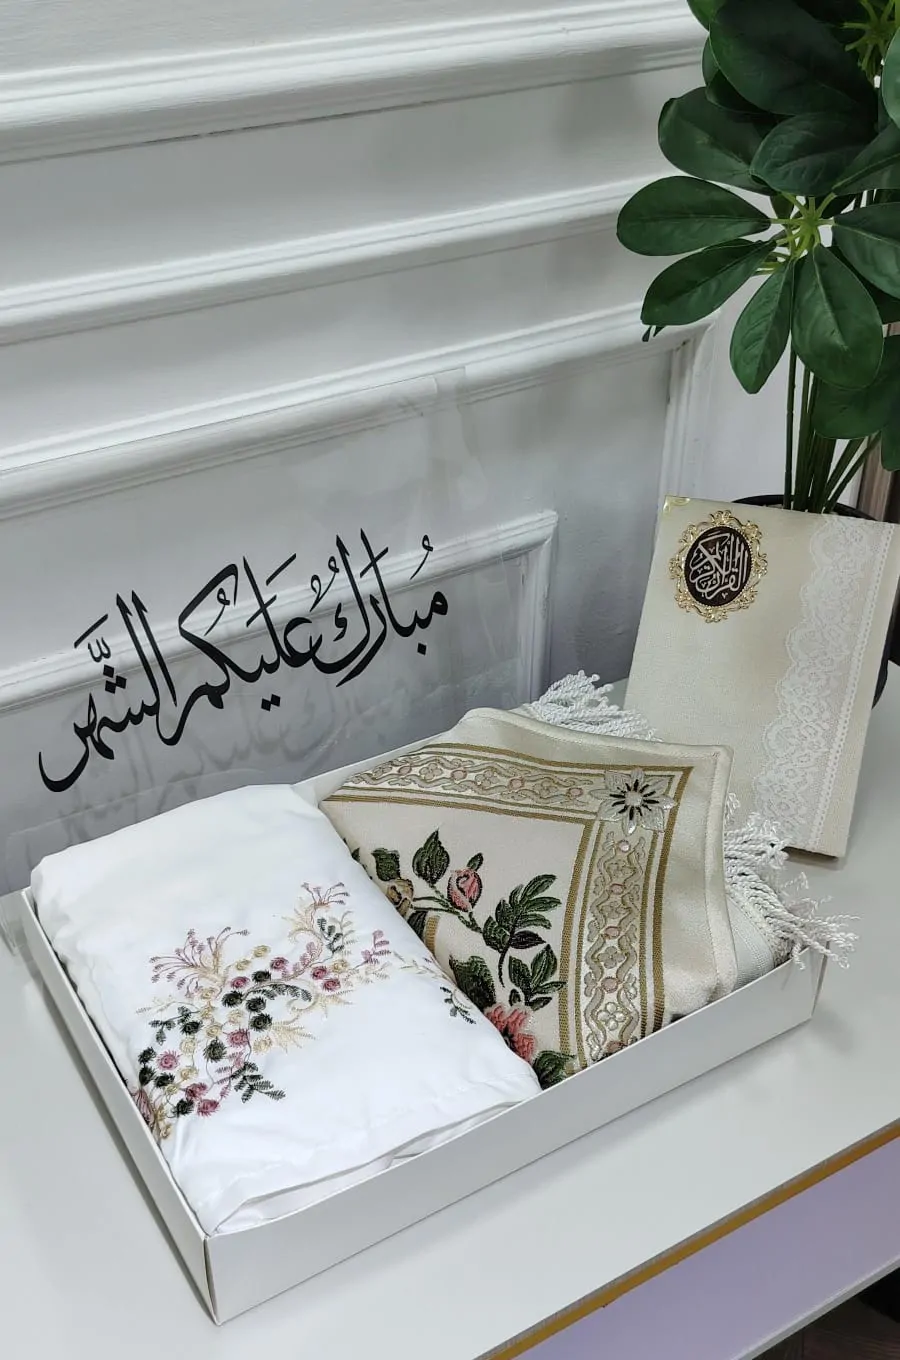 مُبَارَكٌ عَلَيْكُم الشَّهر
القرآن الكريم